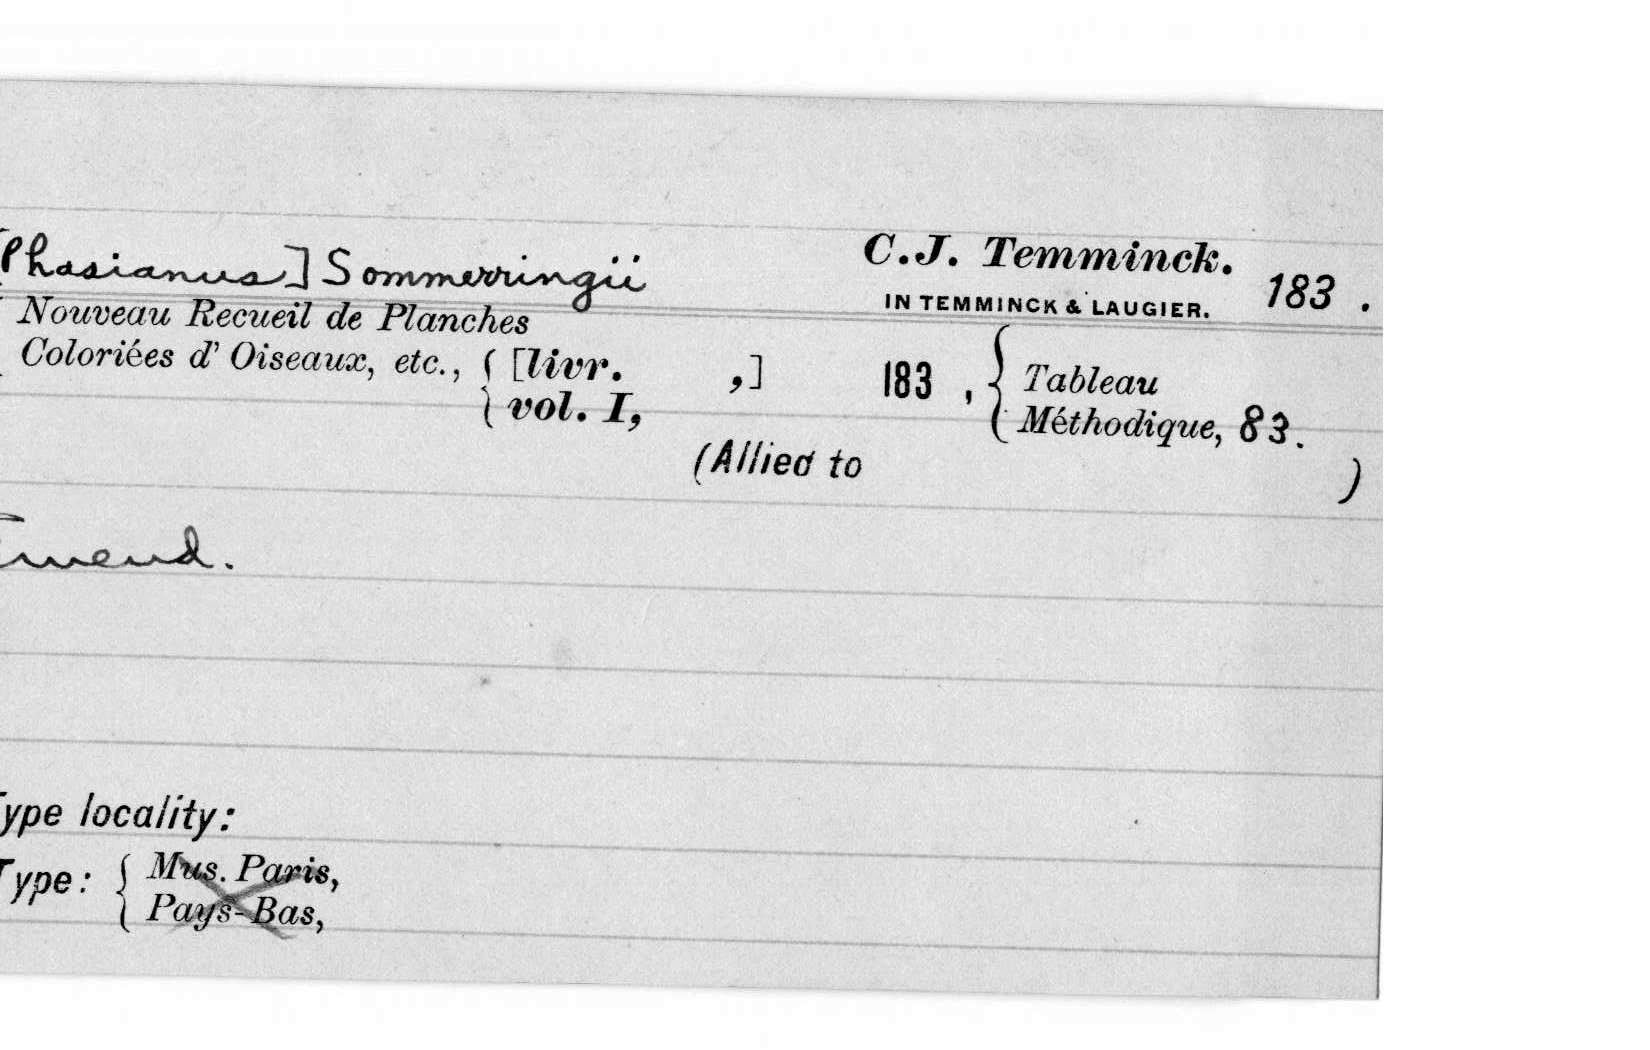 [Phasianus] Sommerringii C.J. Temminck.
IN TEMMINCK & LAUGIER. 183 .
Nouveau Recueil de Planches
Coloriées d' Oiseaux, etc., { [livr. ,] 183 , { Tableau
vol. I, Méthodique, 83.
(Allied to )
Emend.
Type locality:
Type: { Mus. Paris,
Pays-Bas,